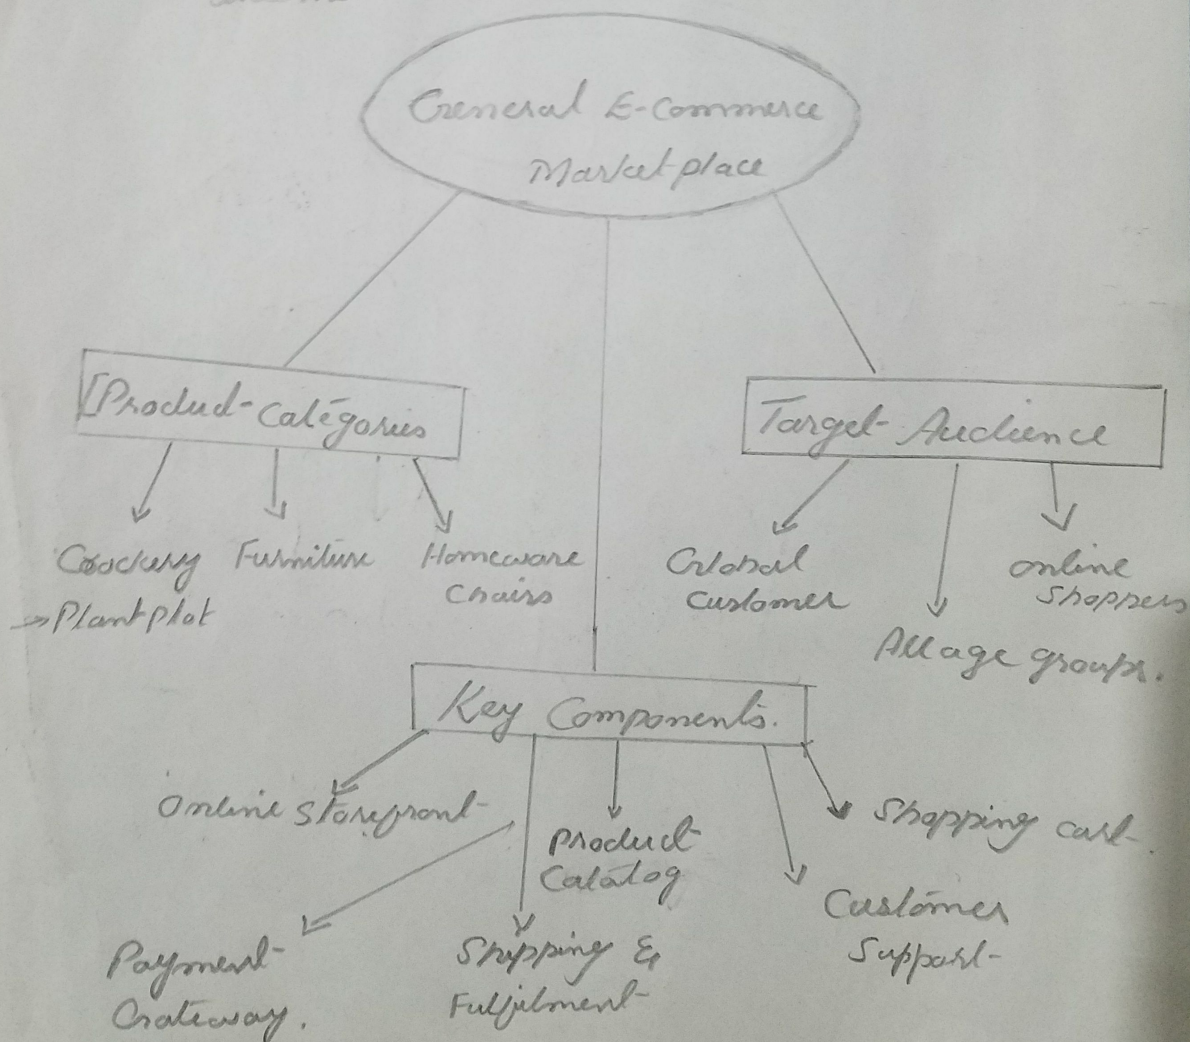 General E-commerce
Marketplace
Product Categories
Target Audience
Crockery
Furniture
Homeware
Chairs
→ Plant plot
Global
Customer
Online
Shoppers
All age groups.
Key Components.
Online Storefront
Product
Catalog
Shopping cart.
Customer
Support
Payment
Gateway.
Shipping &
Fulfilment